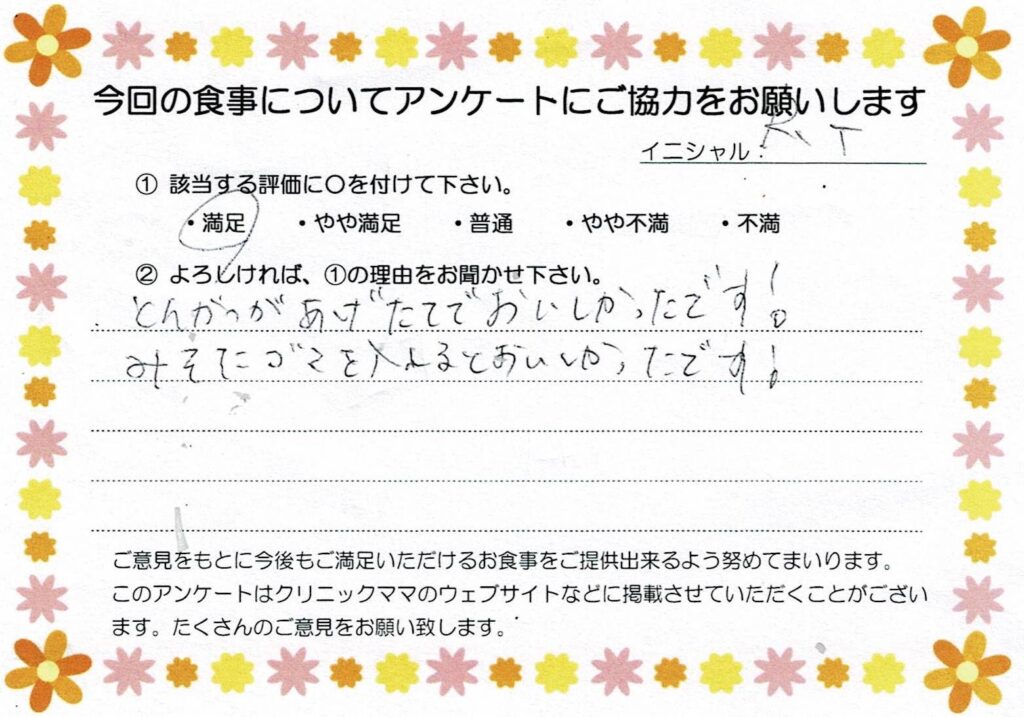 今回の食事についてアンケートにご協力をお願いします
イニシャル: R、T
① 該当する評価に〇を付けて下さい。
・満足 ・やや満足 ・普通 ・やや不満 ・不満
② よろしければ、①の理由をお聞かせ下さい。
とんかつがあげたてでおいしかったです!
みそにゴマを入れるとおいしかったです!
ご意見をもとに今後もご満足いただけるお食事をご提供出来るよう努めてまいります。
このアンケートはクリニックママのウェブサイトなどに掲載させていただくことがござい
ます。たくさんのご意見をお願い致します。